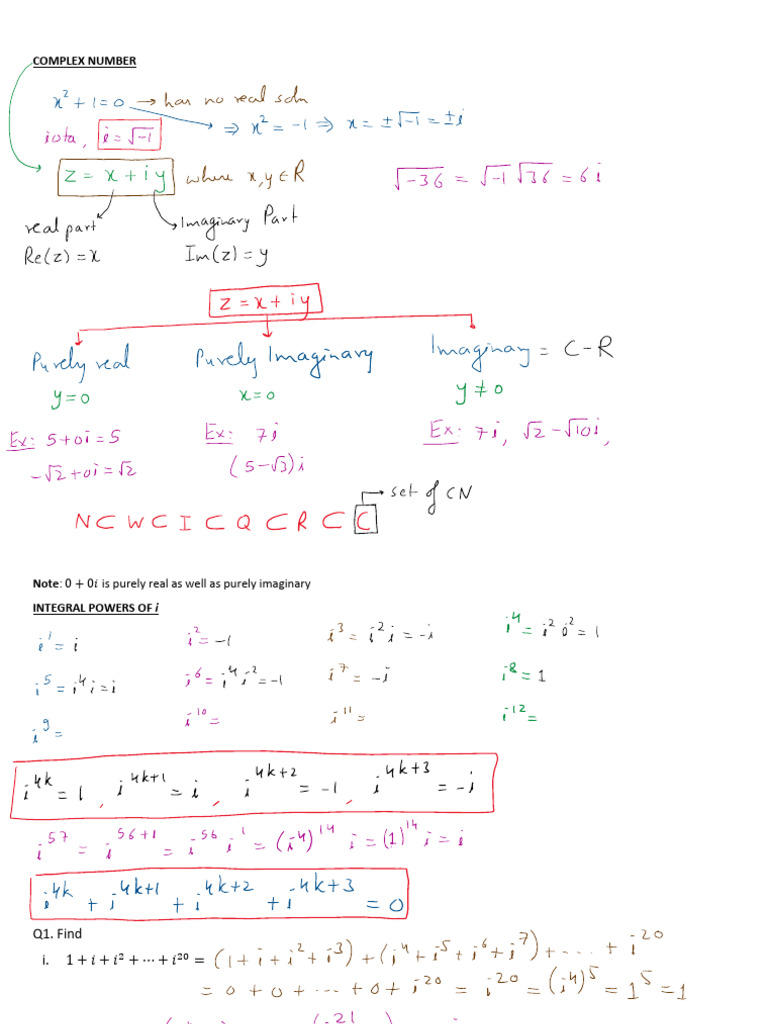 COMPLEX NUMBER
x² + 1 = 0 → has no real soln
⇒ x² = -1 ⇒ x = ±√-1 = ±i
iota, i = √-1
z = x + iy where x, y ∈ R
√-36 = √-1 √36 = 6i
real part
Imaginary Part
Re(z) = x
Im(z) = y
z = x + iy
Purely real
Purely Imaginary
Imaginary = C - R
y = 0
x = 0
y ≠ 0
Ex: 5 + 0i = 5
Ex: 7i
Ex: 7i, √2 - √10i,
-√2 + 0i = √2
(5 - √3)i
→ set of CN
N ⊂ W ⊂ I ⊂ Q ⊂ R ⊂ C
Note: 0 + 0i is purely real as well as purely imaginary
INTEGRAL POWERS OF i
i¹ = i
i² = -1
i³ = i² i = -i
i⁴ = i² i² = 1
i⁵ = i⁴ i = i
i⁶ = i⁴ i² = -1
i⁷ = -i
i⁸ = 1
i⁹ =
i¹⁰ =
i¹¹ =
i¹² =
i⁴ᵏ = 1, i⁴ᵏ⁺¹ = i, i⁴ᵏ⁺² = -1, i⁴ᵏ⁺³ = -i
i⁵⁷ = i⁵⁶⁺¹ = i⁵⁶ i¹ = (i⁴)¹⁴ i = (1)¹⁴ i = i
i⁴ᵏ + i⁴ᵏ⁺¹ + i⁴ᵏ⁺² + i⁴ᵏ⁺³ = 0
Q1. Find
i. 1 + i + i² + ⋯ + i²⁰ = (1 + i + i² + i³) + (i⁴ + i⁵ + i⁶ + i⁷) + ... + i²⁰
= 0 + 0 + ... + 0 + i²⁰ = i²⁰ = (i⁴)⁵ = 1⁵ = 1